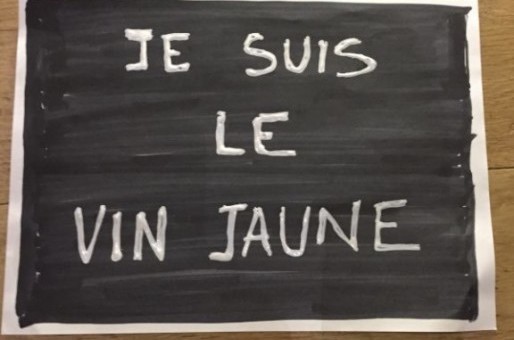 JE SUIS
LE
VIN JAUNE